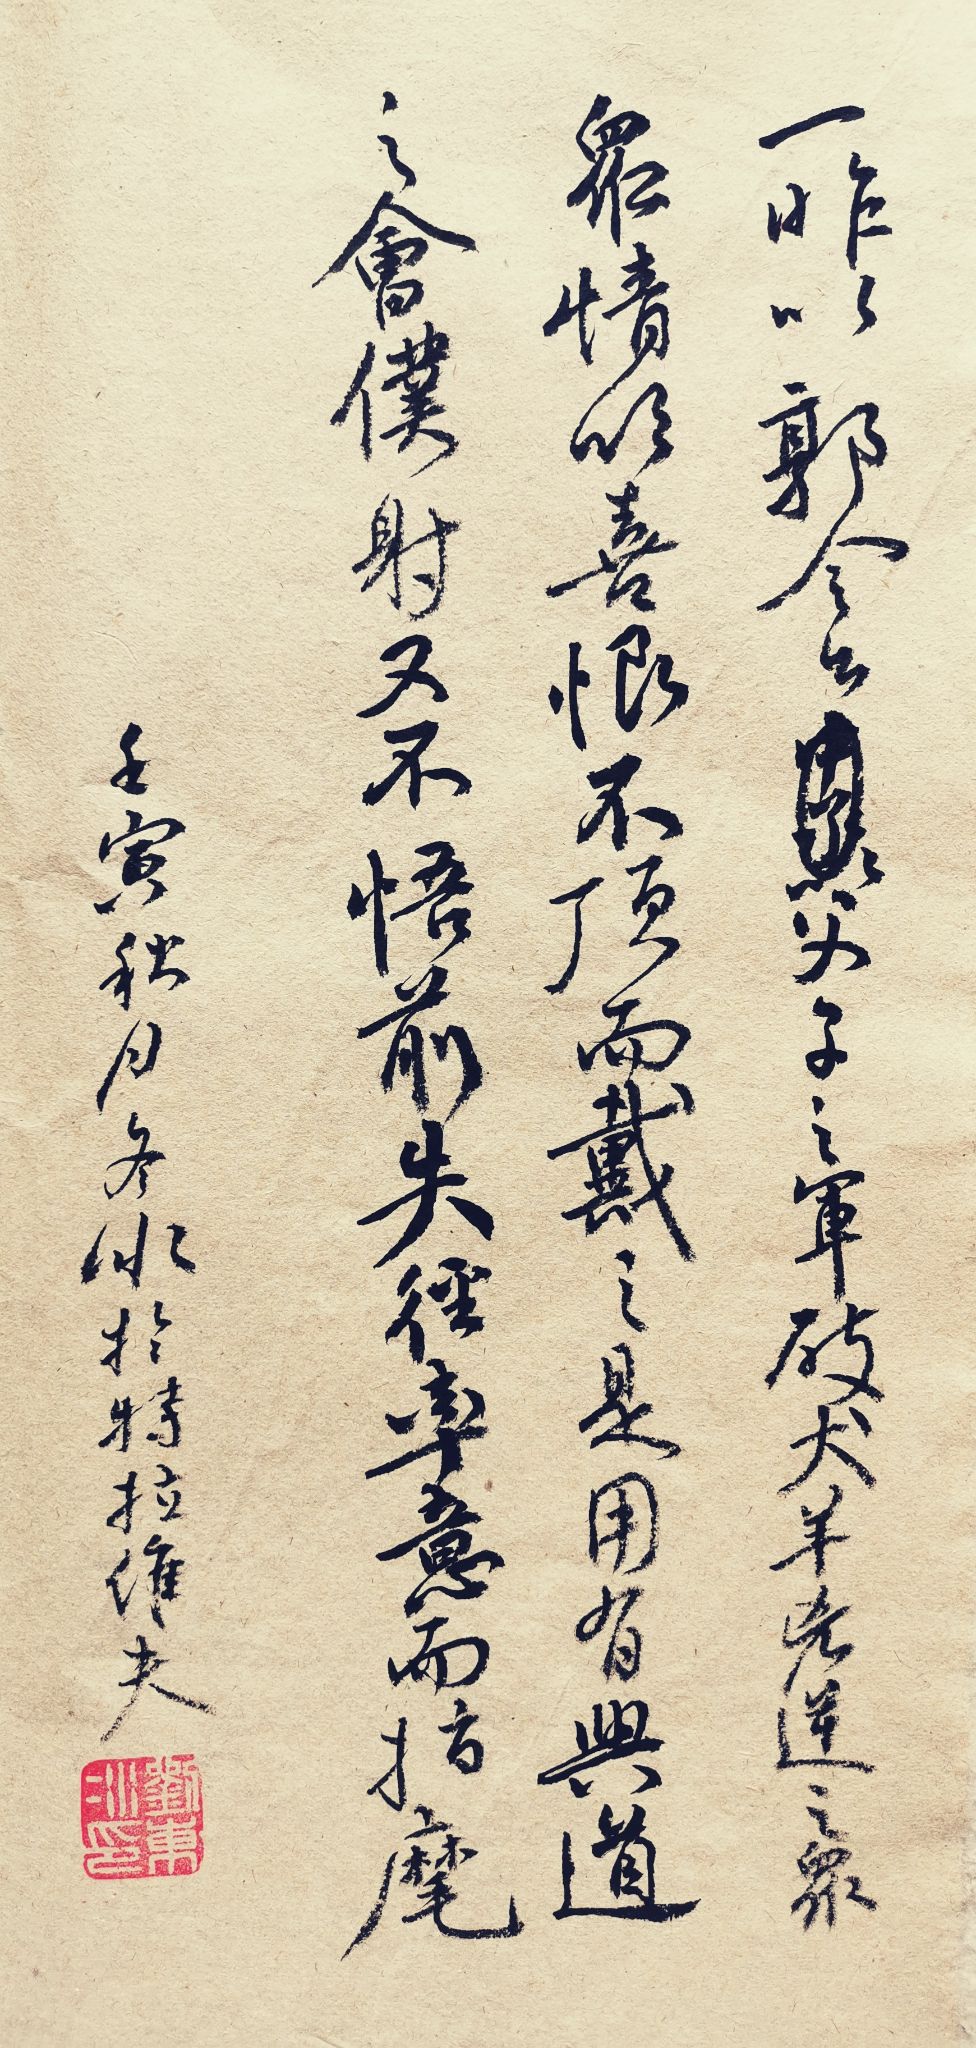 一昨以郭令公父子之軍破犬羊兇逆之眾
眾情欣喜恨不頂而戴之是用有興道
之會僕射又不悟前失徑率意而指麾
壬寅秋月冬冰於特拉維夫
劉東冰印